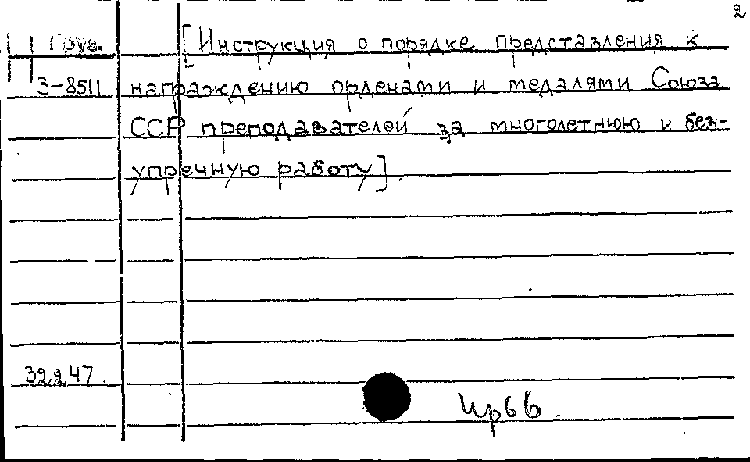 2
Груз. [Инструкция о порядке представления к
3-8511 награждению орденами и медалями Союза
ССР преподавателей за многолетнюю и без-
упречную работу].
32247.